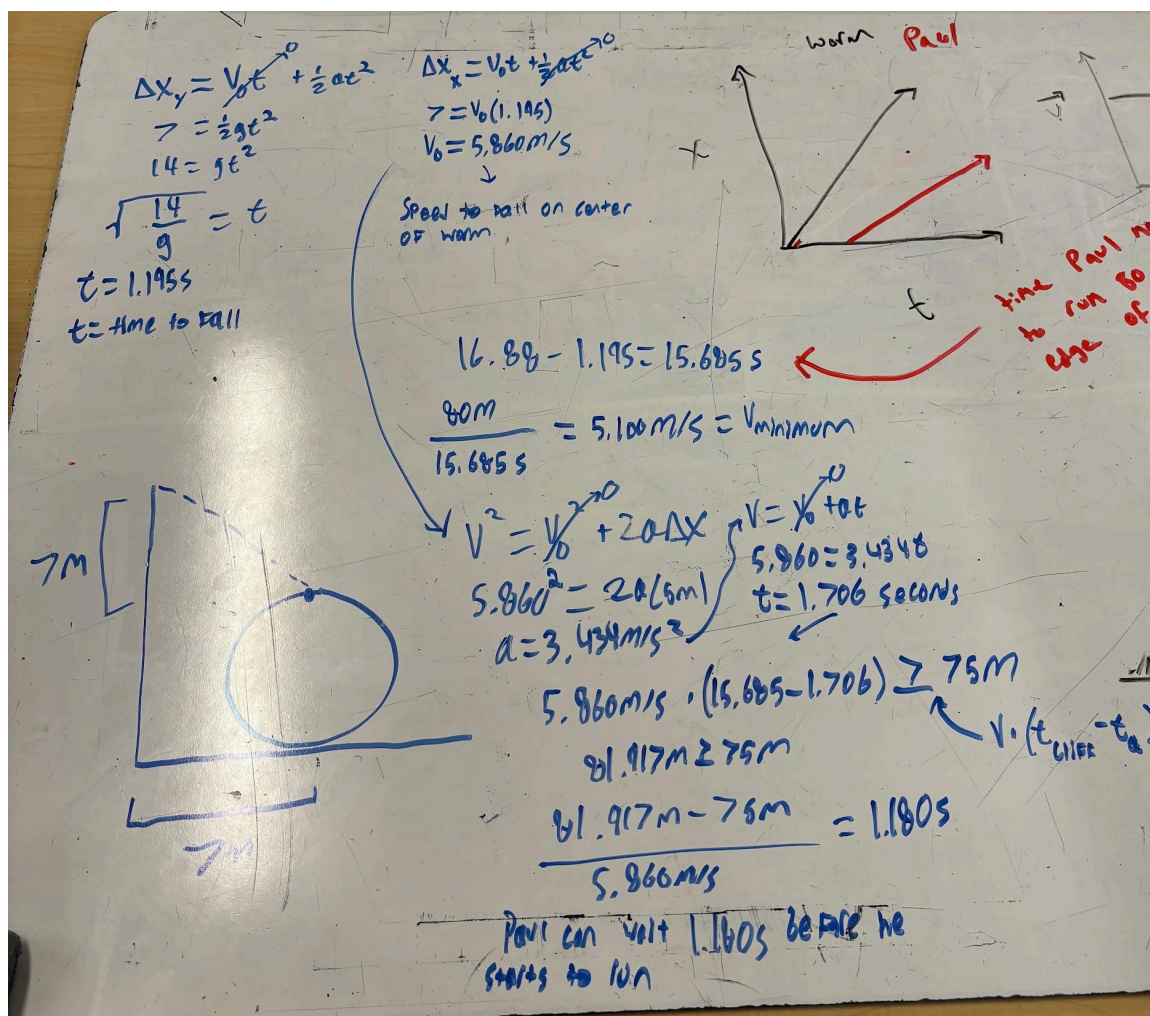 ΔX_y = V₀t→0 + ½at²
7 = ½gt²
14 = gt²
√(14/g) = t
t = 1.195s
t = time to fall
ΔX_x = V₀t + ½at²→0
7 = V₀(1.195)
V₀ = 5.860m/s
↓
Speed to fall on center
of worm
worm Paul
X
t
time Paul
to run 80
edge of
16.88 - 1.195 = 15.685s
80m / 15.685s = 5.100m/s = Vminimum
V² = V₀²→0 + 2aΔX
5.860² = 2a(5m)
a = 3.434m/s²
V = V₀→0 + at
5.860 = 3.434t
t = 1.706 seconds
5.860m/s · (15.685 - 1.706) ≥ 75m
V · (t_cliff - t_a)
81.917m ≥ 75m
(81.917m - 75m) / 5.860m/s = 1.180s
Paul can wait 1.180s before he
starts to run
7m
7m